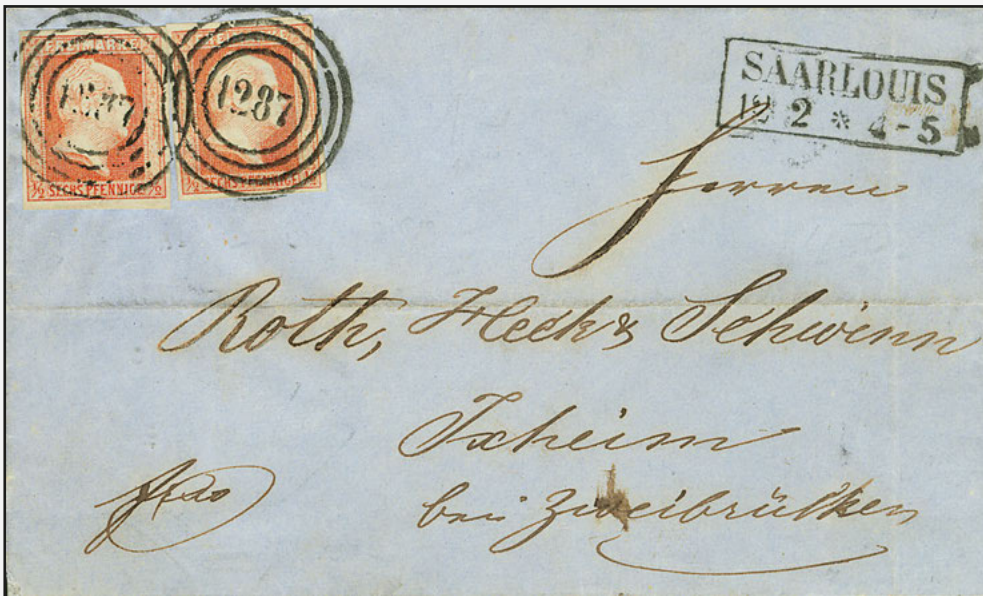 FREIMARKE
1287
½ SECHS PFENNIGE ½
1287
½ SECHS PFENNIGE ½
SAARLOUIS
12 2 * 4-5
Herren
Roth, Heck & Schwinn
Ixheim
bei Zweibrücken